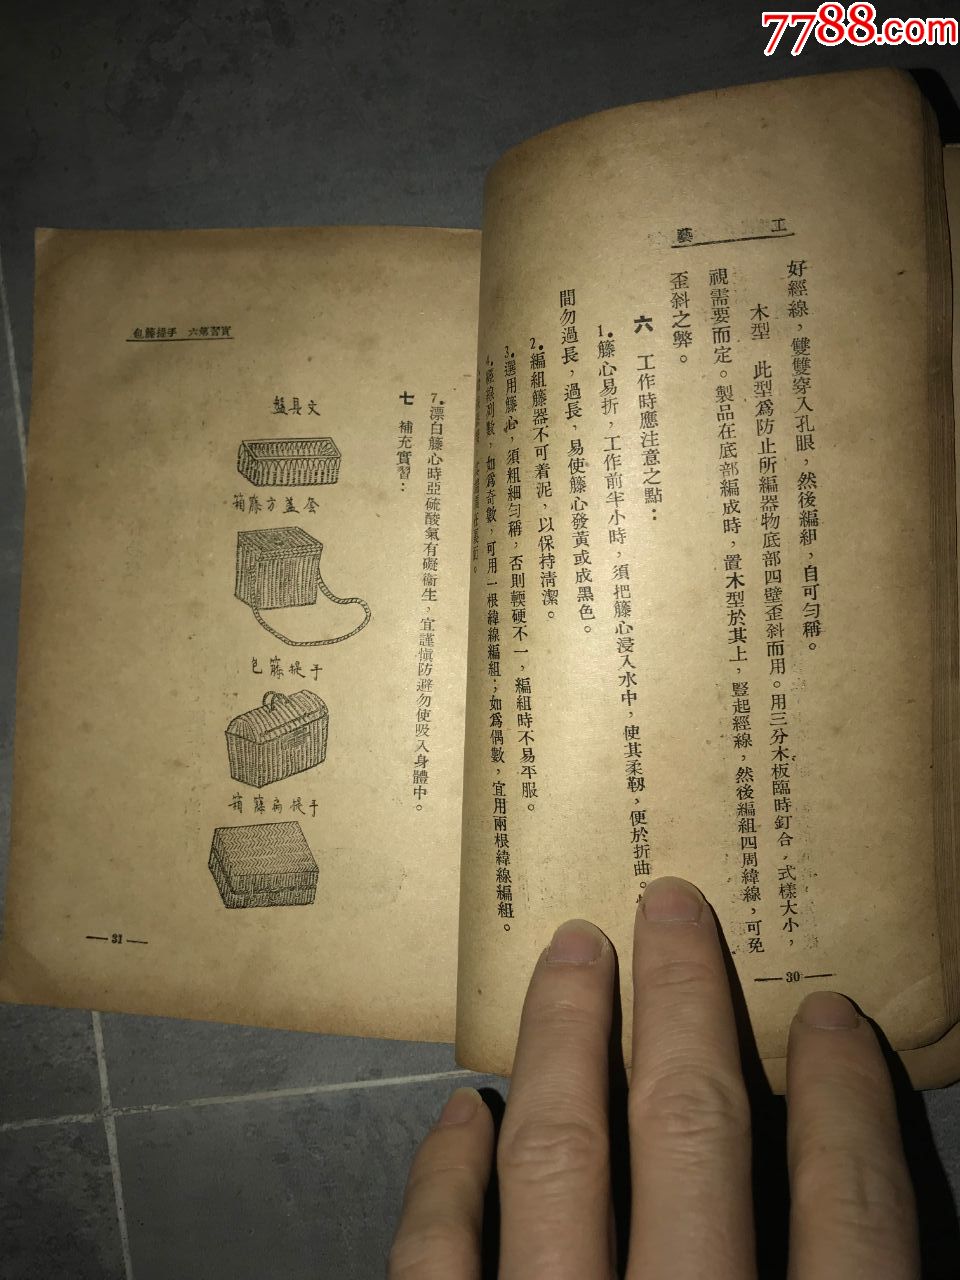 7788.com
工藝
好經線，雙雙穿入孔眼，然後編組，自可勻稱。
木型　此型爲防止所編器物底部四壁歪斜而用。用三分木板臨時釘合，式樣大小，
視需要而定。製品在底部編成時，置木型於其上，豎起經線，然後編組四周緯線，可免
歪斜之弊。
六　工作時應注意之點：
1.籐心易折，工作前半小時，須把籐心浸入水中，使其柔靱，便於折曲。
間勿過長，過長，易使籐心發黃或成黑色。
2.編組籐器不可着泥，以保持清潔。
3.選用籐心，須粗細勻稱，否則輭硬不一，編組時不易平服。
4.經線列數，如爲奇數，可用一根緯線編組；如爲偶數，宜用兩根緯線編組。
—30—
實習第六　手提籐包
7.漂白籐心時亞硫酸氣有礙衞生，宜謹愼防避勿使吸入身體中。
七　補充實習：
文具盤
套蓋方籐箱
手提籐包
手提扁籐箱
—31—